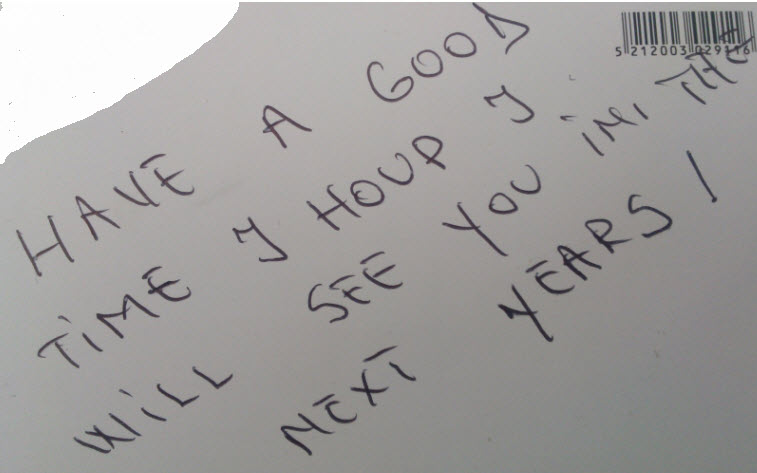 5 212003 029116
HAVE A GOOD
TIME I HOUP I
WILL SEE YOU IN THE
NEXT YEARS!